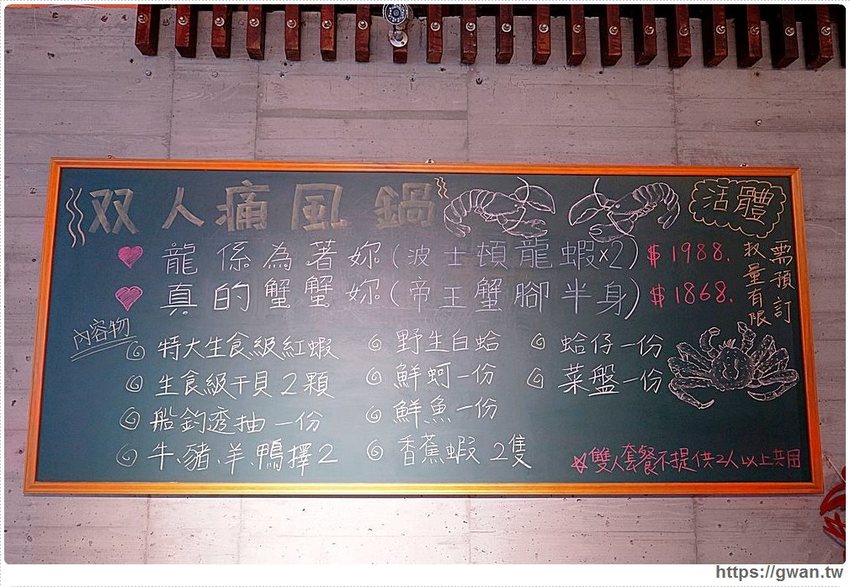 双人痛風鍋
活體
龍係為著妳(波士頓龍蝦×2) $1988.
真的蟹蟹妳(帝王蟹腳半身) $1868.
需預訂
數量有限
內容物
特大生食級紅蝦
生食級干貝2顆
船釣透抽一份
牛、豬、羊、鴨擇2
野生白蛤
鮮蚵一份
鮮魚一份
香蕉蝦2隻
蛤仔一份
菜盤一份
☆雙人套餐不提供2人以上共用
https://gwan.tw